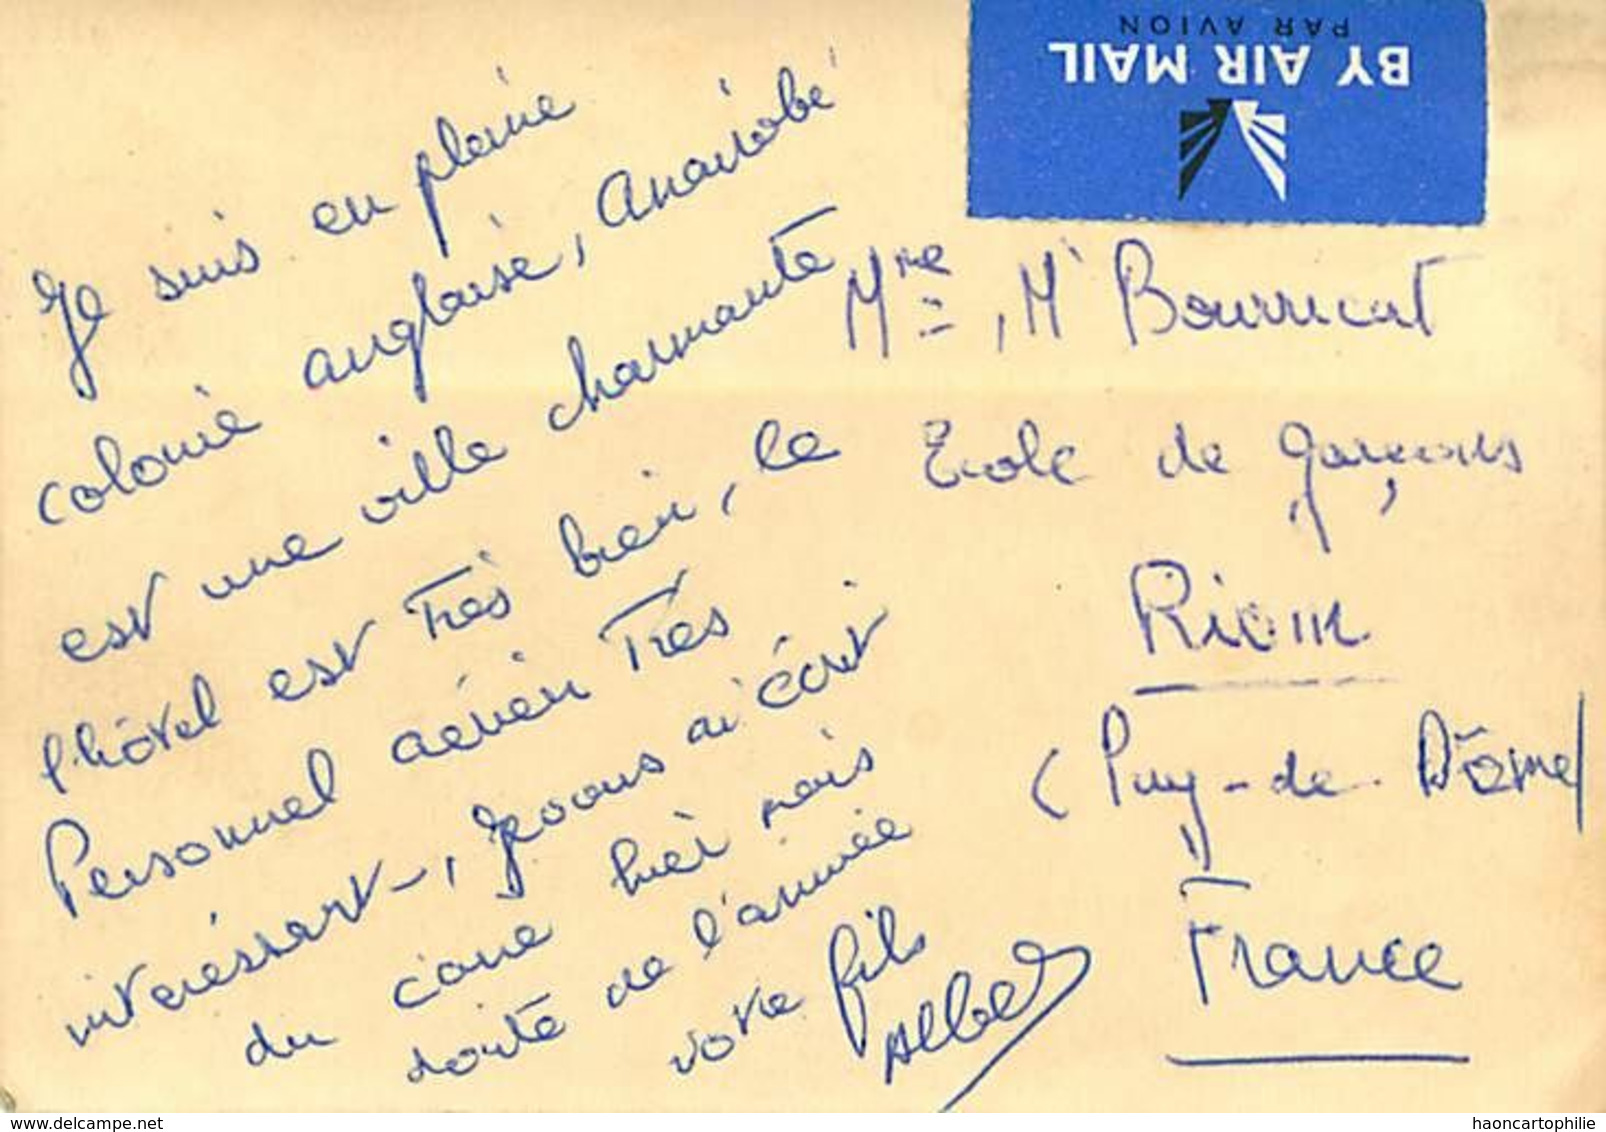 PAR AVION
BY AIR MAIL
Je suis en pleine
colonie anglaise, Anairobé
est une ville charmante
l'hôtel est très bien, le
Personnel aérien très
intéressant -, je vous ai écrit
du caire hier mais
de l'année
votre fils
Albert
Mme, Mr Bourricat
Ecole de garçons
Riom
(Puy-de-Dôme)
France
delcampe.net
haoncartophilie